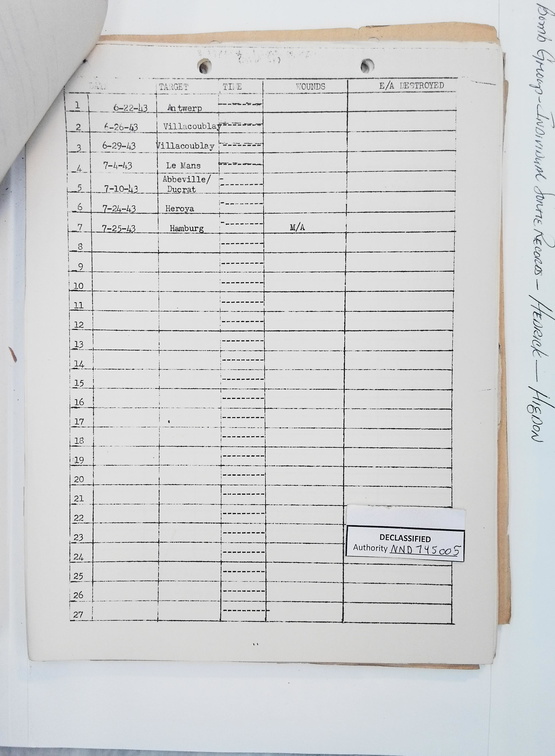 TARGET TIME WOUNDS E/A DESTROYED
1 6-22-43 Antwerp
2 6-26-43 Villacoublay
3 6-29-43 Villacoublay
4 7-4-43 Le Mans
5 7-10-43 Abbeville/
Ducrat
6 7-24-43 Heroya
7 7-25-43 Hamburg M/A
8
9
10
11
12
13
14
15
16
17
18
19
20
21
22
23
24
25
26
27
DECLASSIFIED
Authority NND 745005
Bomb Group-Individual Sortie Records - Hedrick - Higdon